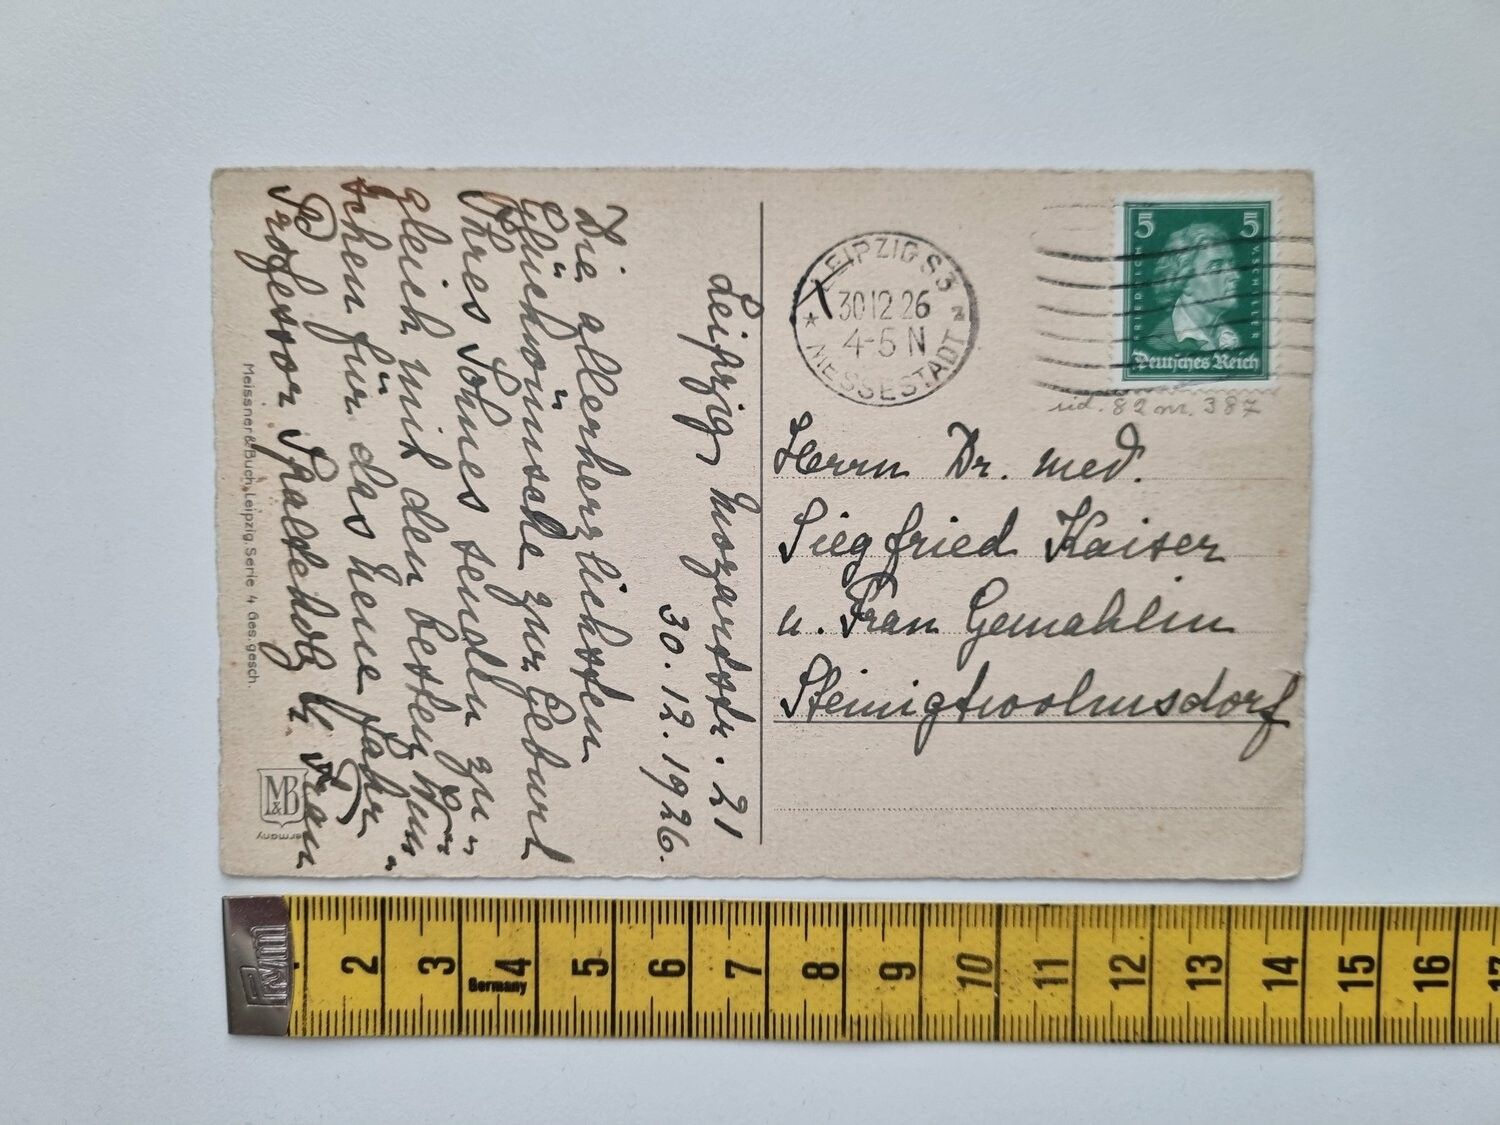 Leipzig, Mozartstr. 21
30.12.1926.
Die allerherzlichsten
Glückwünsche zur Geburt
Ihres Sohnes senden zu-
gleich mit den besten Wün-
schen für das neue Jahr
Professor Spalteholz u. Frau
Meissner & Buch, Leipzig. Serie 4 Ges. gesch.
M&B
Germany
LEIPZIG S3
30 12 26
4-5 N
MESSESTADT
5 5
FRIEDRICH V. SCHILLER
Deutsches Reich
82 nr. 387
Herrn Dr. med.
Siegfried Kaiser
u. Frau Gemahlin
Steinigtwolmsdorf
Prym
2 3 4 5 6 7 8 9 10 11 12 13 14 15 16 17
Germany